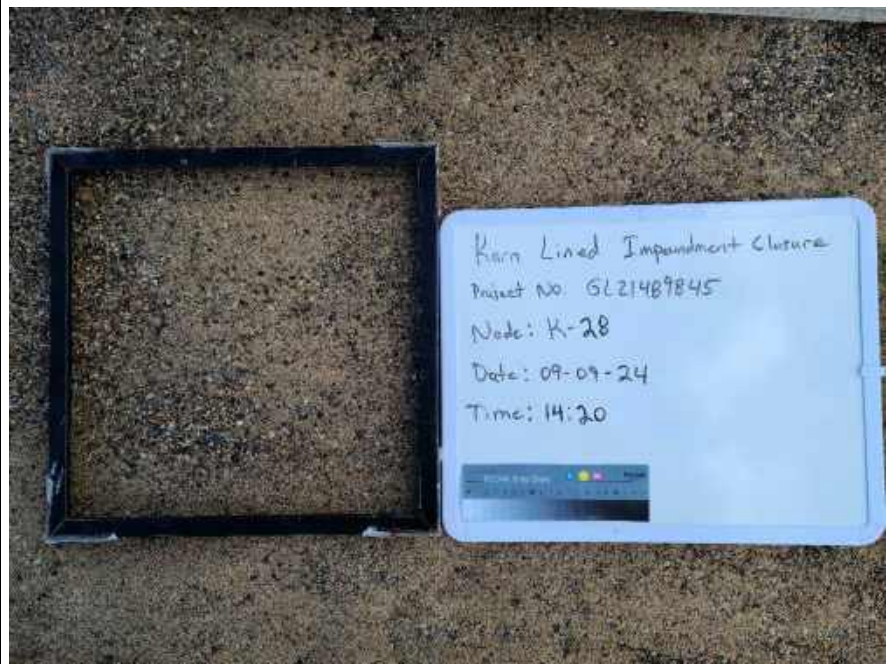 Karn Lined Impoundment Closure
Project No. GL21489845
Node: K-28
Date: 09-09-24
Time: 14:20